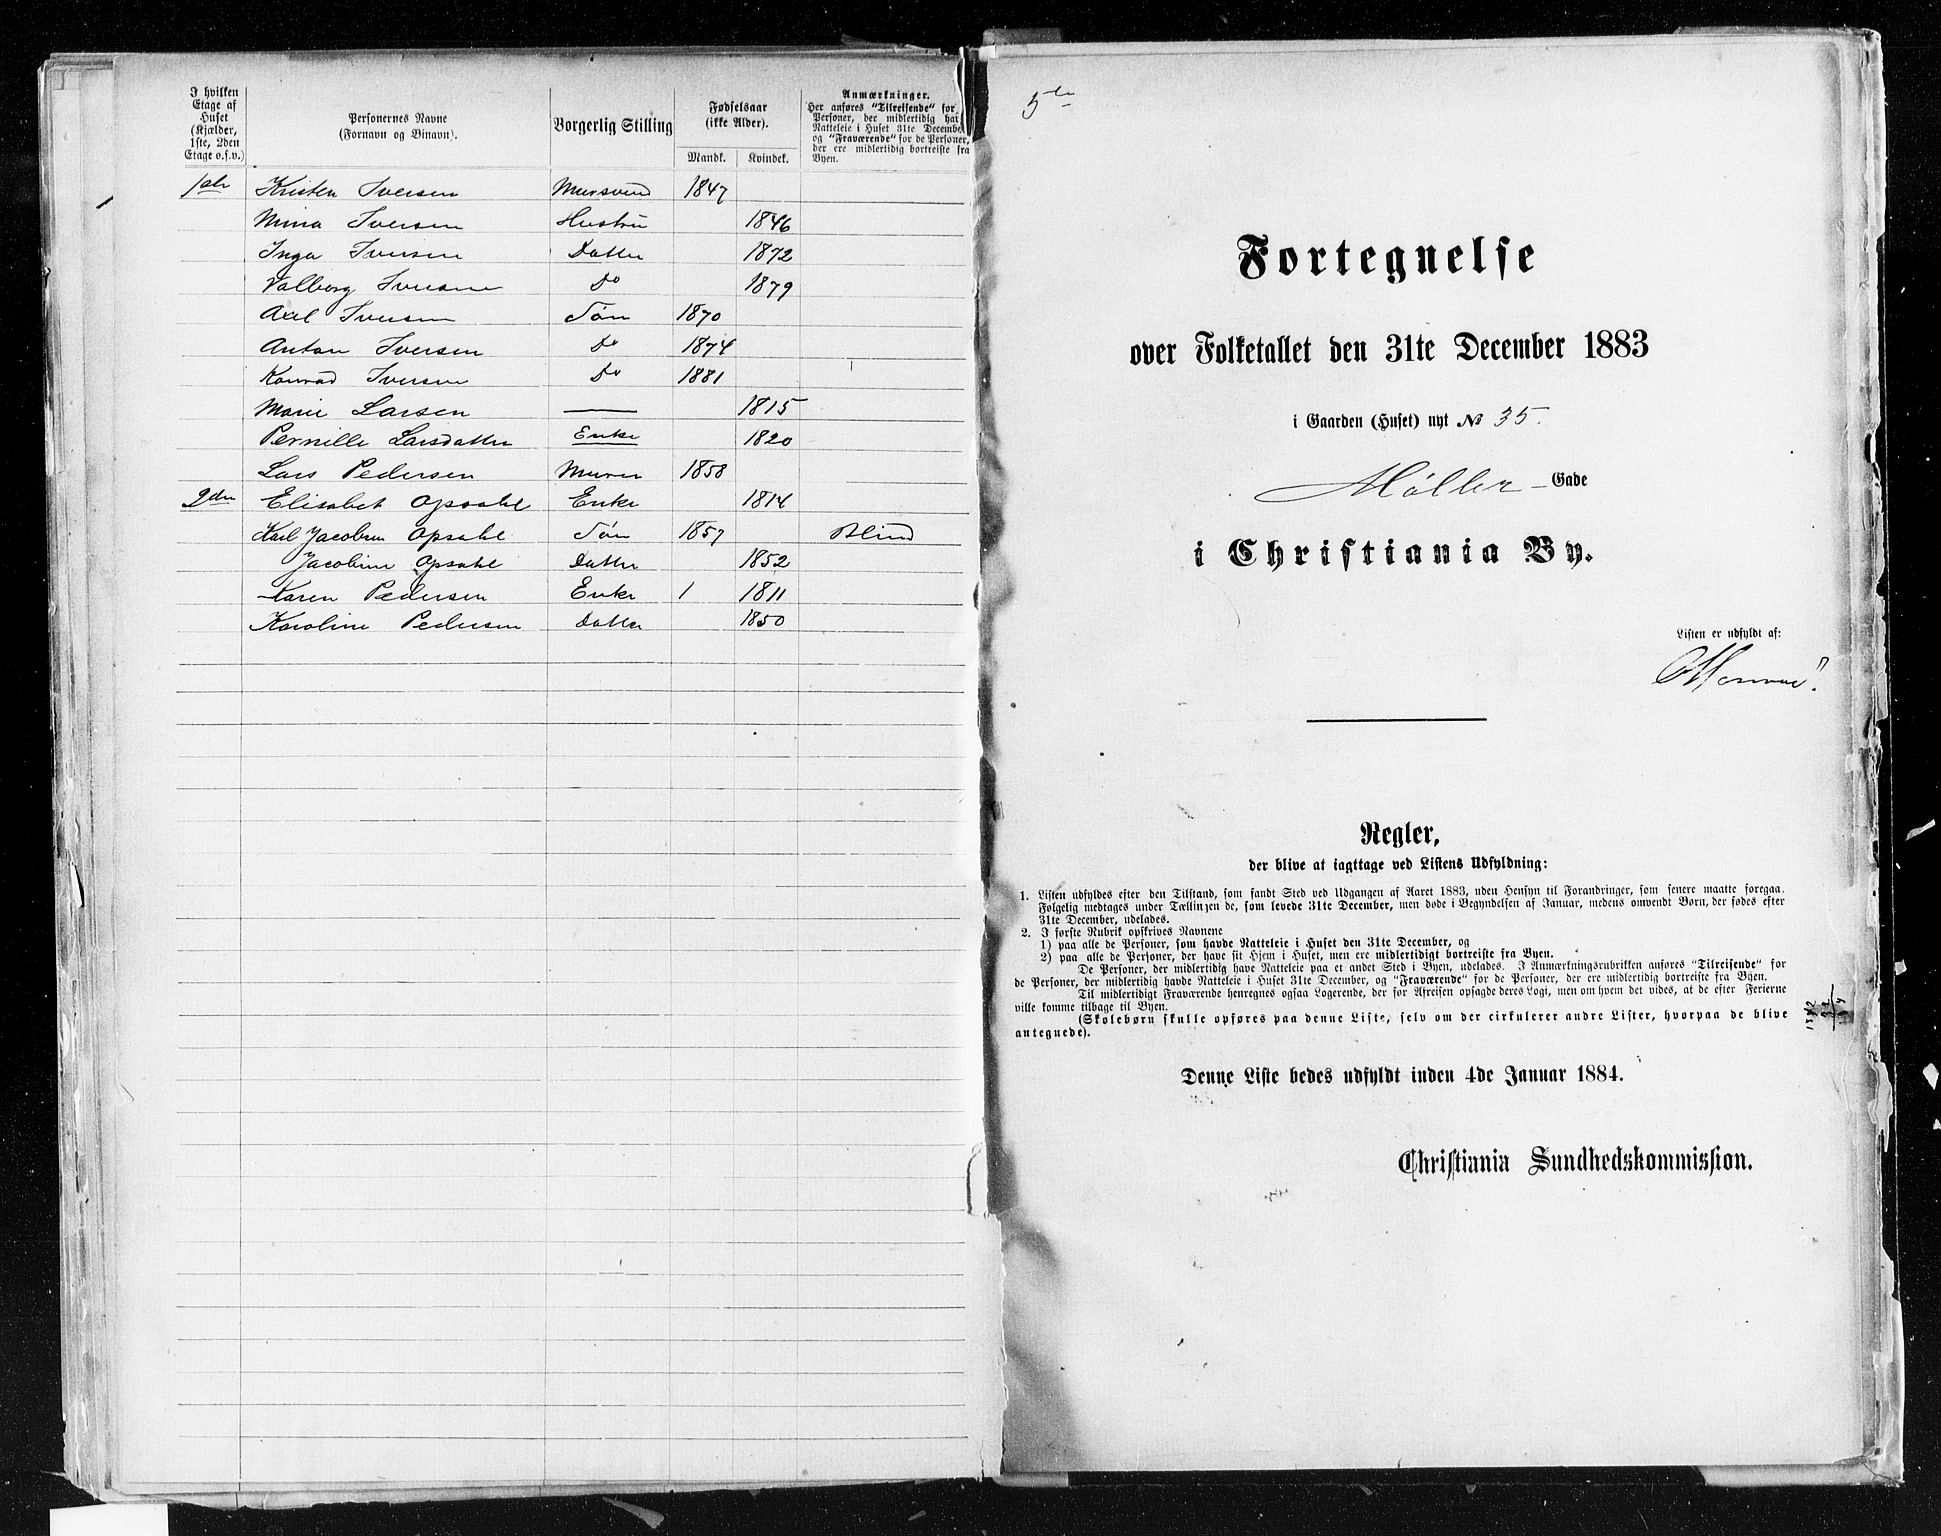 I hvilken
Etage af
Huset
(Kjælder,
1ste, 2den
Etage o.s.v.)
Personernes Navne
(Fornavn og Binavn).
Borgerlig Stilling
Fødselsaar
(ikke Alder).
Mandk. Kvindek.
Anmærkninger.
Her anføres "Tilreisende" for
Personer, der midlertidig hav
Natteleie i Huset 31te Decembe
og "Fraværende" for de Personer,
der ere midlertidig bortreiste fra
Byen.
1ste Kristen Iversen Mursvend 1847
Mina Iversen Hustru 1846
Inga Iversen Datter 1872
Valborg Iversen Do 1879
Axel Iversen Søn 1870
Anton Iversen Do 1874
Konrad Iversen Do 1881
Marie Larsen — 1815
Pernille Larsdatter Enke 1820
Lars Pedersen Murer 1858
2den Elisabet Opsahl Enke 1814
Karl Jacobsen Opsahl Søn 1857 Blind
Jacobine Opsahl Datter 1852
Karen Pedersen Enke 1 1811
Karoline Pedersen Datter 1850
5te
Fortegnelse
over Folketallet den 31te December 1883
i Gaarden (Huset) nyt № 35.
Møller-Gade
i Christiania By.
Listen er udfyldt af:
Regler,
der blive at iagttage ved Listens Udfyldning:
1. Listen udfyldes efter den Tilstand, som fandt Sted ved Udgangen af Aaret 1883, uden Hensyn til Forandringer, som senere maatte foregaa.
Følgelig medtages under Tællingen de, som levede 31te December, men døde i Begyndelsen af Januar, medens omvendt Børn, der fødes efter
31te December, udelades.
2. I første Rubrik opskrives Navnene
1) paa alle de Personer, som havde Natteleie i Huset den 31te December, og
2) paa alle de Personer, der have sit Hjem i Huset, men ere midlertidigt bortreiste fra Byen.
De Personer, der midlertidig have Natteleie paa et andet Sted i Byen, udelades. I Anmærkningsrubrikken anføres "Tilreisende" for
de Personer, der midlertidig havde Natteleie i Huset 31te December, og "Fraværende" for de Personer, der ere midlertidig bortreiste fra Byen.
Til midlertidigt Fraværende henregnes ogsaa Logerende, der før Afreisen opsagde deres Logi, men om hvem det vides, at de efter Ferierne
ville komme tilbage til Byen.
(Skolebørn skulle opføres paa denne Liste, selv om der cirkulerer andre Lister, hvorpaa de blive
antegnede).
Denne Liste bedes udfyldt inden 4de Januar 1884.
Christiania Sundhedskommission.